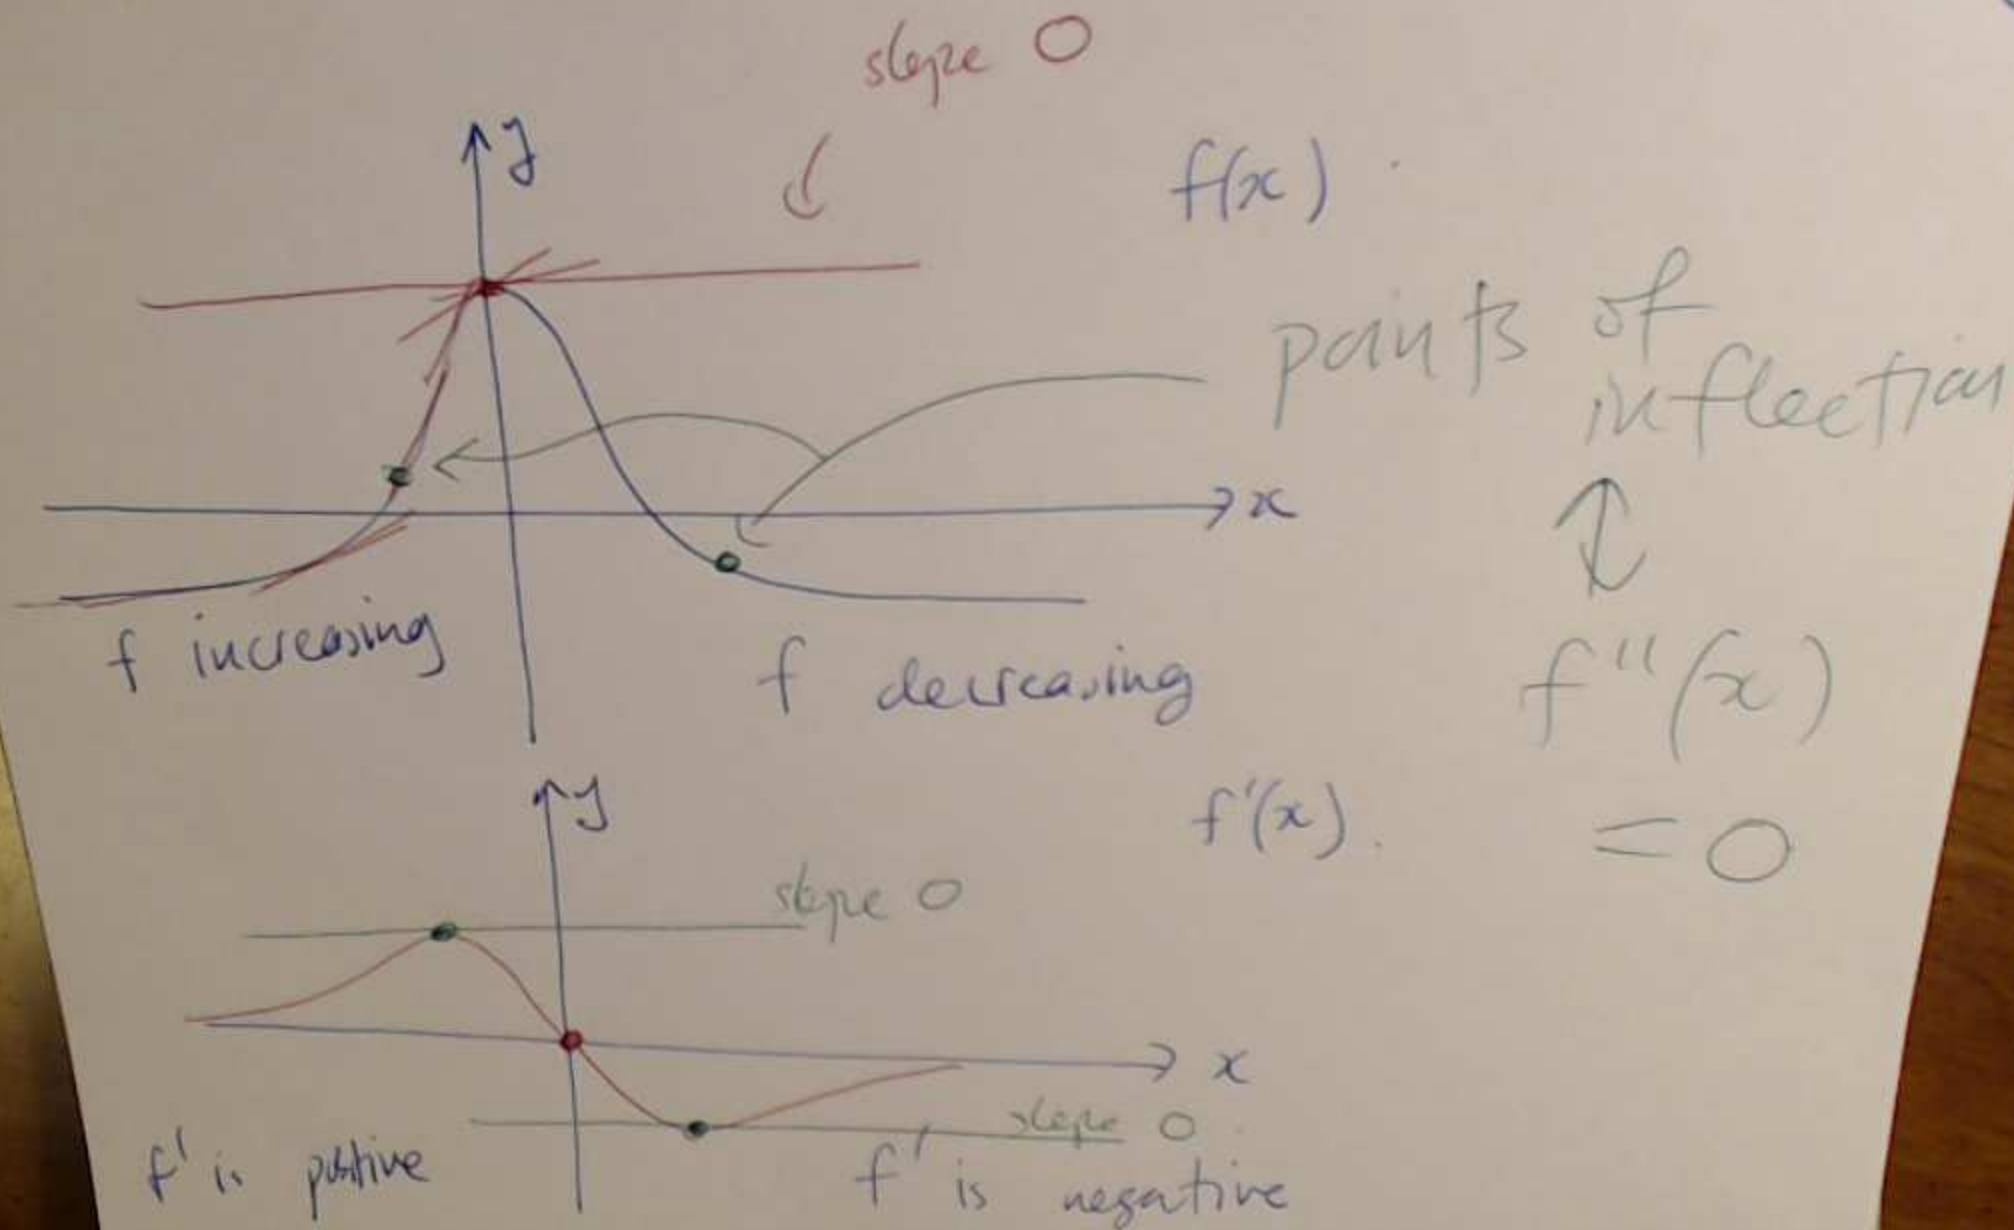 slope 0
y
f(x)
points of
inflection
x
f increasing
f decreasing
f''(x)
= 0
y
f'(x).
slope 0
x
slope 0
f' is postive
f' is negative